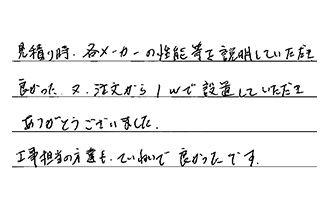 見積り時、各メーカーの性能等を説明していただき
良かった。又、注文から1wで設置していただき
ありがとうございました。
工事担当の方達も、ていねいで良かったです。